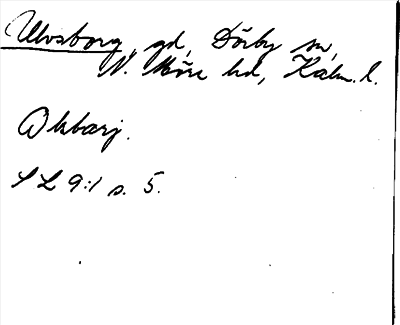 Ulvsborg, gd, Dörby sn,
N. Möre hd, Kalm. l.
Okbarj.
SL 9:1 s. 5.